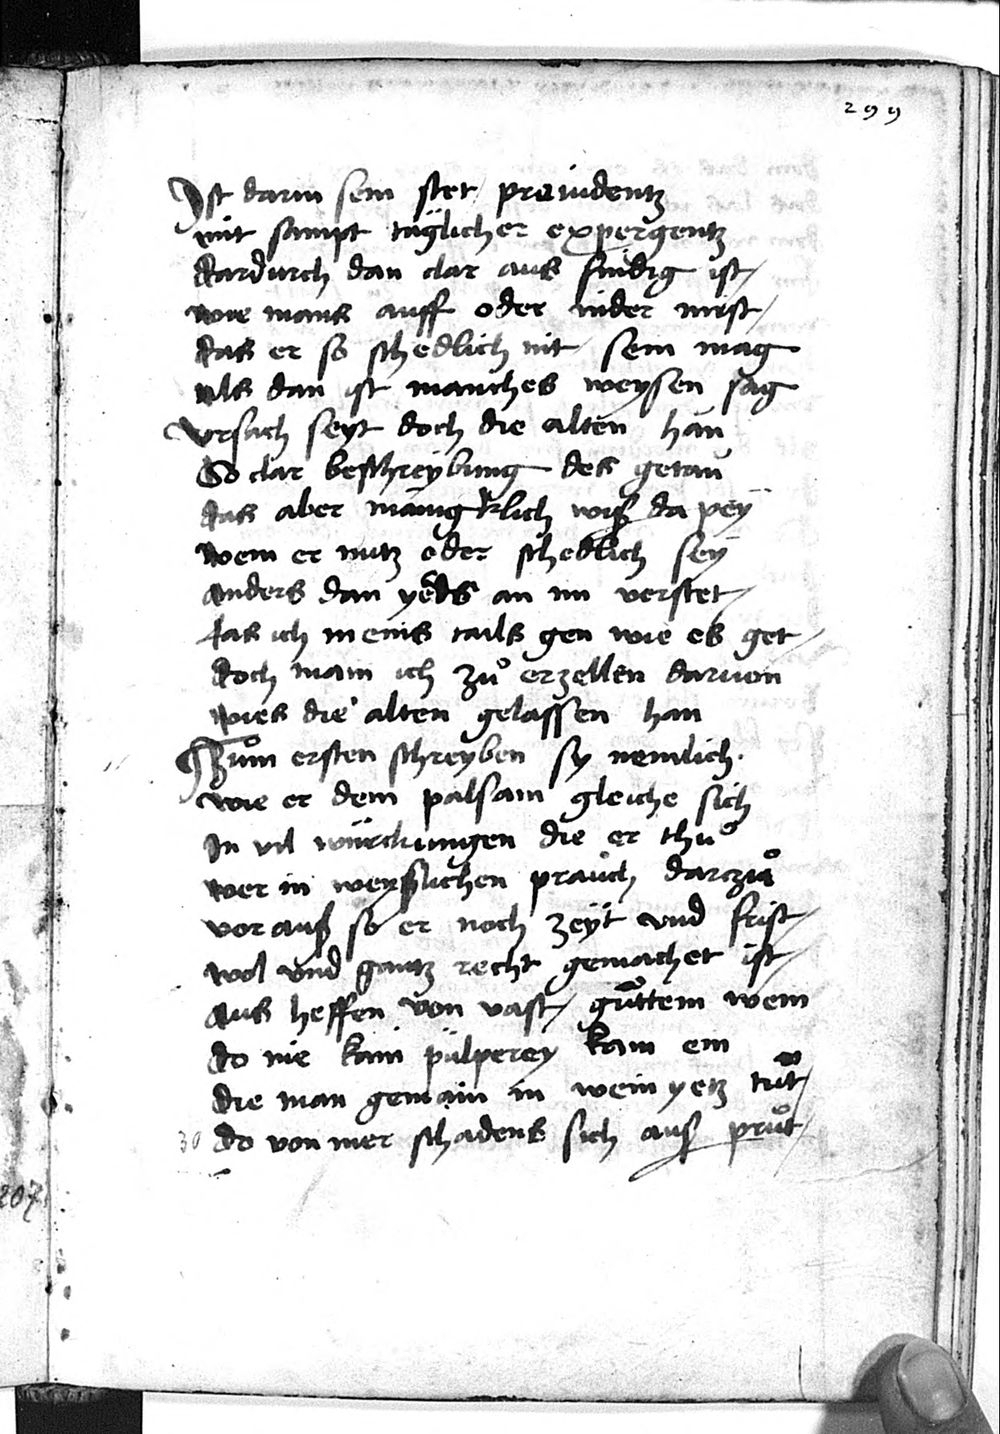 299
Ist darin sein stet prouidentz
mit sampt täglicher expergentz
Dardurch dan clar aus findig ist
wie mans auff oder nider mist
Das er so schedlich nit sein mag
Als dan ist manches weysen sag
Vrsach seyt doch die alten han
So clar beschreybung des getan
Das aber mänigklich wiß da pey
wem er nutz oder schedlich sey
Anders dan yeds an im verstet
las ich meins tails gen wie es get
Doch main ich zů erzellen daruon
wies die alten gelassen han
Zům ersten schreyben sy nemlich
wie er dem palsam gleiche sich
In vil würckungen die er thů
wer in weysslichen prauch darczů
vorauß so er noch zeyt vnd frist
wol vnd gantz recht gemachet ist
Aus heffen von vast gůttem wein
do nie kain pülperey kam ein
die man gemain in wein yetz tůt
30 do von mer schadens sich auß průt
207